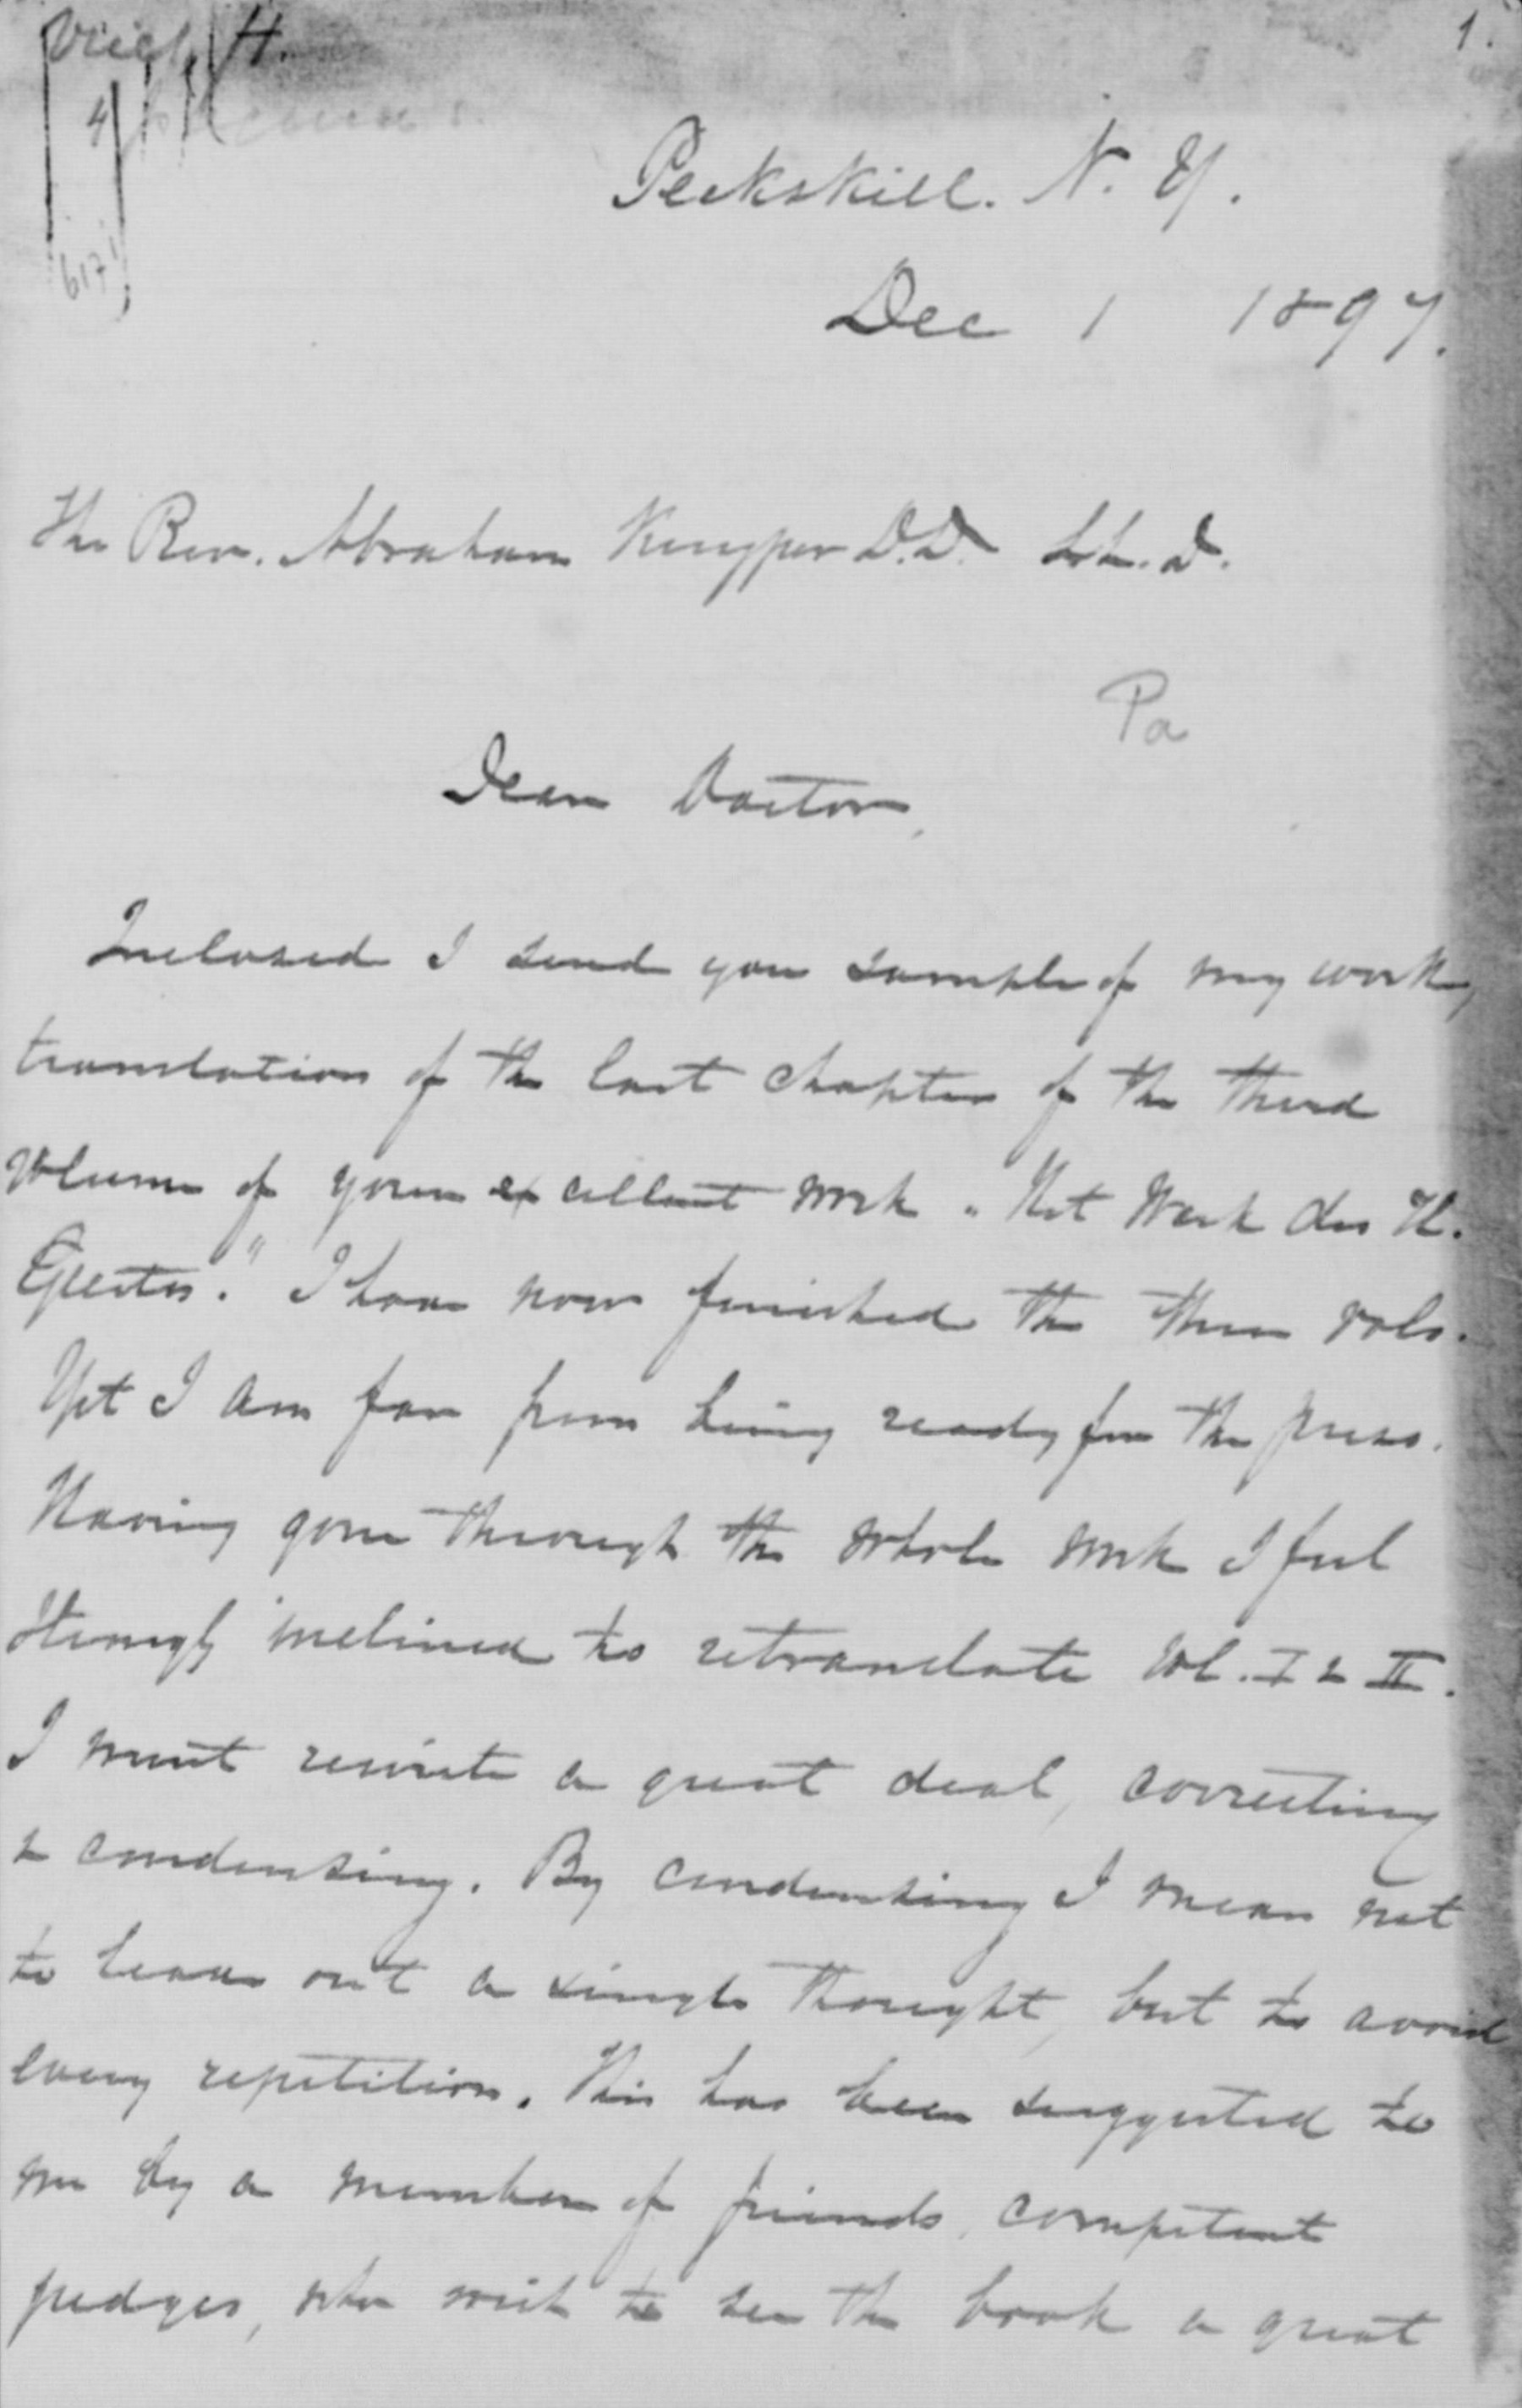 1.
H.
6171
Peekskill. N. Y.
Dec 1 1897.
The Rev. Abraham Kuyper D.D. LL.D.
Pa
Dear Doctor,
Inclosed I send you sample of my work,
translation of the last chapter of the third
volume of your excellent work "Het Werk des H.
Geestes." I have now finished the three vols.
Yet I am far from being ready for the press.
Having gone through the whole work I feel
strongly inclined to retranslate Vol. I & II.
I must rewrite a great deal, correcting
& condensing. By condensing I mean not
to leave out a single thought, but to avoid
every repetition. This has been suggested to
me by a number of friends, competent
judges, who wish to see the book a great